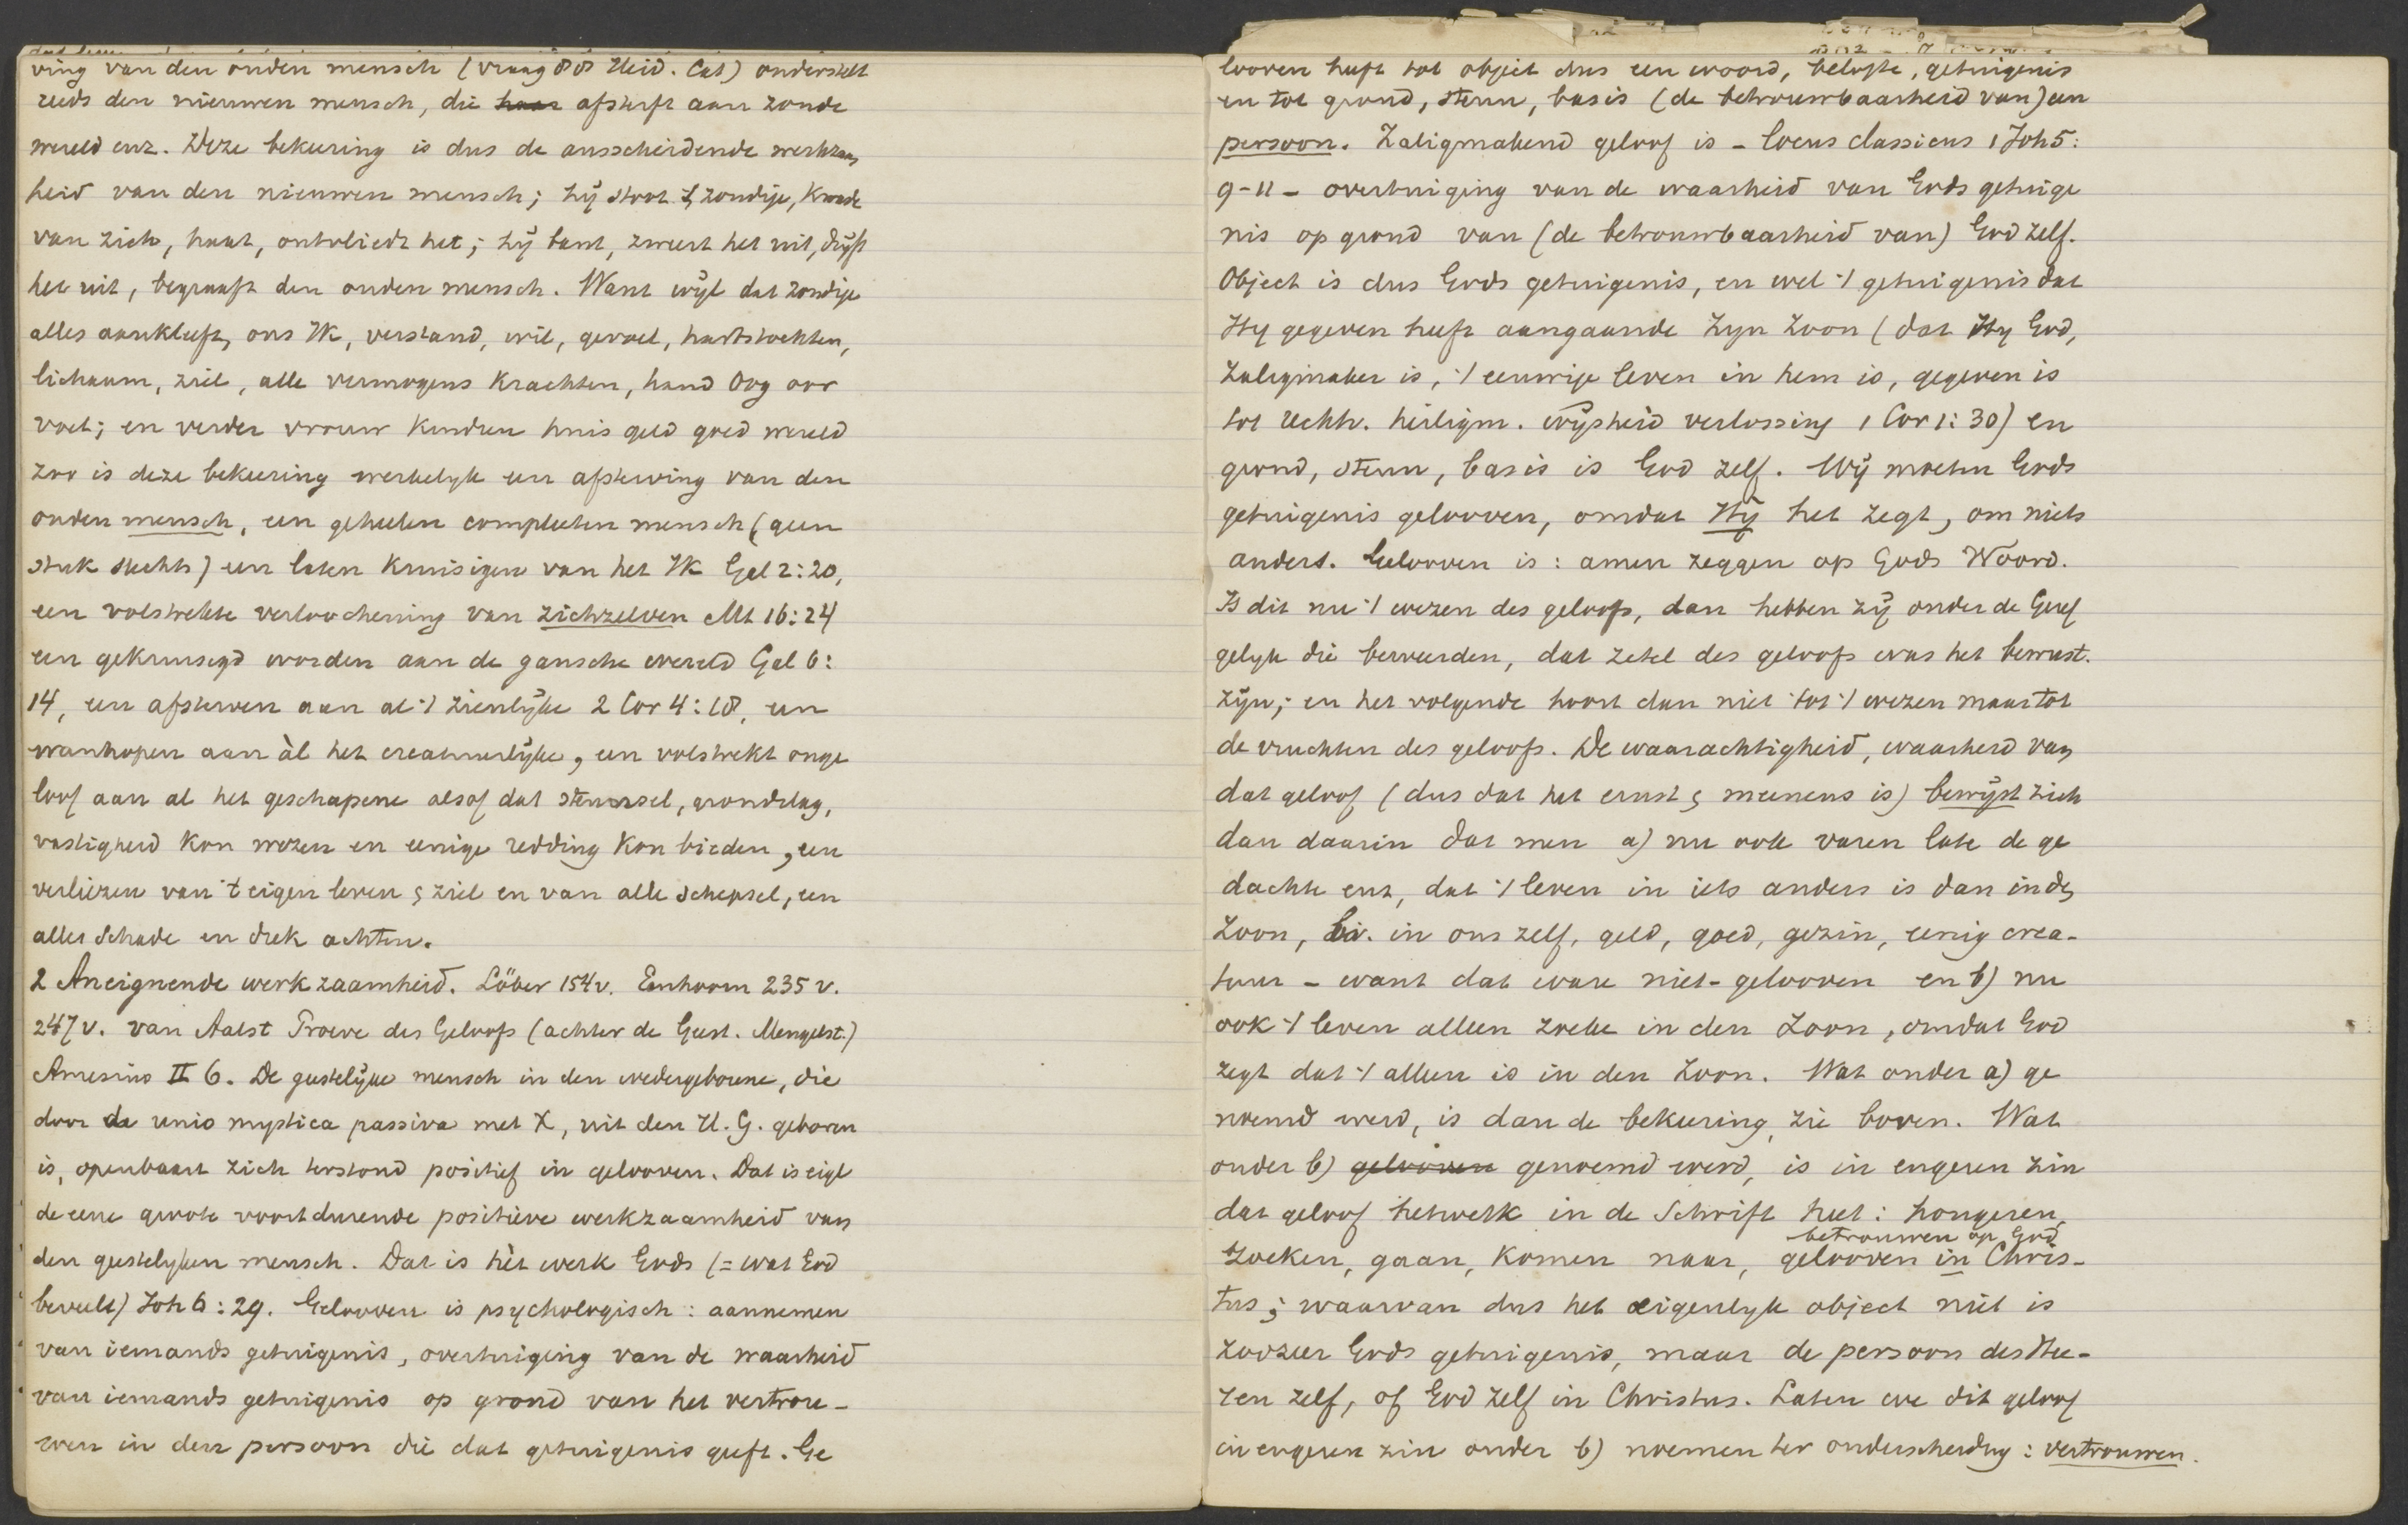 ving van den ouden mensch (vraag 88 Heid. Cat) onderstelt
reeds den nieuwen mensch, die haar afsterft aan zonde
wereld enz. Deze bekeering is dus de ausscheidende werkzaam
heid van den nieuwen mensch; hij stoot 't zondige, kwade
van zich, haat, ontvliedt het; hij bant, zweert het uit, drijft
het uit, begraaft den ouden mensch. Want wijl dat zondige
alles aankleeft, ons Ik, verstand, wil, gevoel, hartstochten,
lichaam, ziel, alle vermogens krachten, hand oog oor
voet; en verder vrouw kindren huis geld goed wereld
zoo is deze bekeering werkelyk een afsterving van den
ouden mensch, een geheelen compleeten mensch (geen
stuk slechts) een laten kruisigen van het Ik Gal 2:20,
een volstrekte verloochening van zichzelven Mt 16:24
een gekruisigd worden aan de gansche wereld Gal 6:
14, een afsterven aan al 't zienlijke 2 Cor 4:18, een
wanhopen aan àl het creatuurlijke, een volstrekt onge
loof aan al het geschapene alsof dat steunsel, grondslag,
vastigheid kon wezen en eenige redding kon bieden, een
verliezen van 't eigen leven & ziel en van alle schepsel, een
alles schade en drek achten.
2 Aneignende werkzaamheid. Löber 154v. Eenhoorn 235 v.
247 v. van Aalst Proeve des Geloofs (achter de Geest. Mengelst.)
Amesius II 6. De geestelijke mensch in den wedergeborene, die
door de unio mystica passiva met X, uit den H.G. geboren
is, openbaart zich terstond positief in gelooven. Dat is eigl
de eene groote voortdurende positieve werkzaamheid van
den geestelyken mensch. Dat is hèt werk Gods (= wat God
beveelt) Joh 6:29. Gelooven is psychologisch: aannemen
van iemands getuigenis, overtuiging van de waarheid
van iemands getuigenis op grond van het vertrou-
wen in den persoon die dat getuigenis geeft. Ge
looven heeft tot object dus een woord, belofte, getuigenis
en tot grond, steun, basis (de betrouwbaarheid van) een
persoon. Zaligmakend geloof is - locus classicus 1 Joh 5:
9-11 - overtuiging van de waarheid van Gods getuige
nis op grond van (de betrouwbaarheid van) God zelf.
Object is dus Gods getuigenis, en wel 't getuigenis dat
Hy gegeven heeft aangaande Zyn Zoon (dat Hy God,
Zaligmaker is, 't eeuwige leven in hem is, gegeven is
tot rechtv. heiligm. wijsheid verlossing 1 Cor 1:30) en
grond, steun, basis is God zelf. Wij moeten Gods
getuigenis gelooven, omdat Hij het zegt, om niets
anders. Gelooven is: amen zeggen op Gods Woord.
Is dit nu 't wezen des geloofs, dan hebben zij onder de Geref
gelyk die beweerden, dat zetel des geloofs was het bewust.
zijn; en het volgende hoort dan niet tot 't wezen maar tot
de vruchten des geloofs. De waarachtigheid, waarheid van
dat geloof (dus dat het ernst & meenens is) bewijst zich
dan daarin dat men a) nu ook varen late de ge
dachte enz, dat 't leven in iets anders is dan in den
Zoon, bv. in ons zelf, geld, goed, gezin, eenig crea-
tuur - want dat ware niet-gelooven en b) nu
ook 't leven alleen zoeke in den Zoon, omdat God
zegt dat 't alleen is in den Zoon. Wat onder a) ge
noemd werd, is dan de bekeering, zie boven. Wat
onder b) gelooven genoemd werd, is in engeren zin
dat geloof hetwelk in de Schrift heet: hongeren,
betrouwen op God
zoeken, gaan, komen naar, gelooven in Chris-
tus; waarvan dus het eigenlyk object niet is
zoozeer Gods getuigenis, maar de persoon des Hee-
ren zelf, of God zelf in Christus. Laten we dit geloof
in engeren zin onder b) noemen ter onderscheidng: vertrouwen.